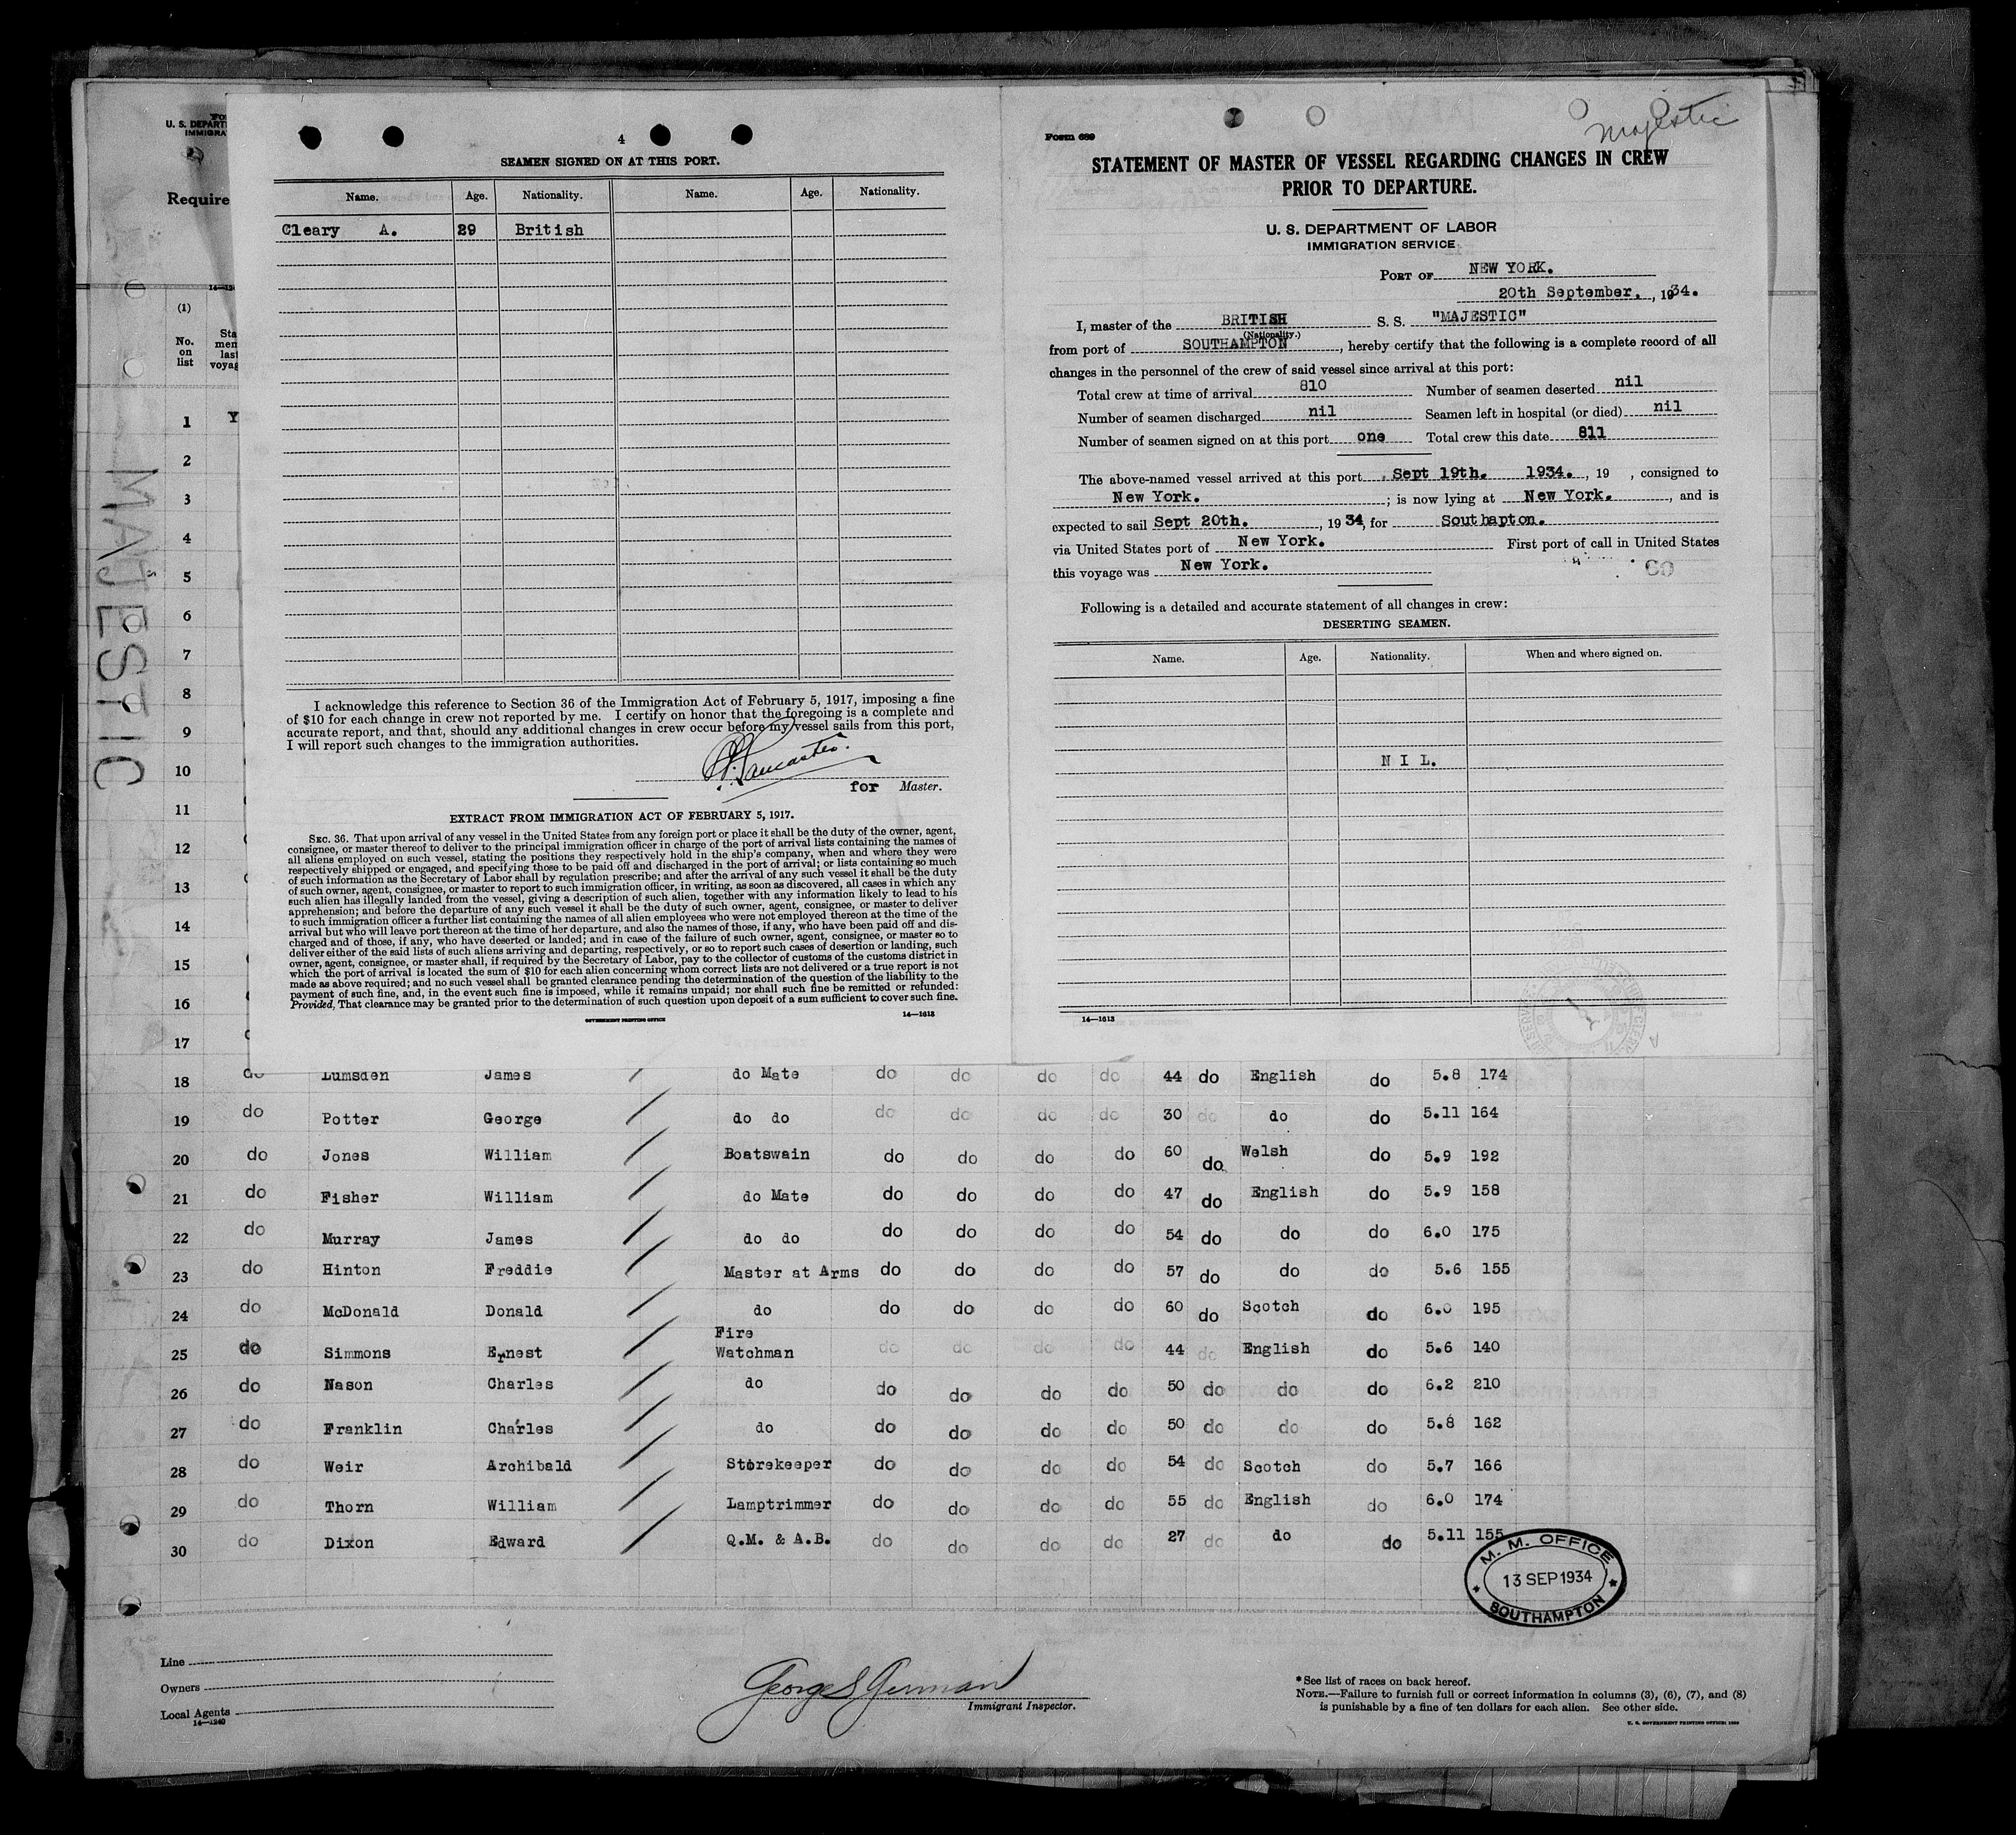 U. S. DEPART
IMMIGRA
Require
14—124
(1)
No. on list
Sta
men
last
voyag
MAJESTIC
4
SEAMEN SIGNED ON AT THIS PORT.
Name. Age. Nationality. Name. Age. Nationality.
Cleary A. 29 British
I acknowledge this reference to Section 36 of the Immigration Act of February 5, 1917, imposing a fine
of $10 for each change in crew not reported by me. I certify on honor that the foregoing is a complete and
accurate report, and that, should any additional changes in crew occur before my vessel sails from this port,
I will report such changes to the immigration authorities.
Lancaster.
for Master.
EXTRACT FROM IMMIGRATION ACT OF FEBRUARY 5, 1917.
SEC. 36. That upon arrival of any vessel in the United States from any foreign port or place it shall be the duty of the owner, agent,
consignee, or master thereof to deliver to the principal immigration officer in charge of the port of arrival lists containing the names of
all aliens employed on such vessel, stating the positions they respectively hold in the ship's company, when and where they were
respectively shipped or engaged, and specifying those to be paid off and discharged in the port of arrival; or lists containing so much
of such information as the Secretary of Labor shall by regulation prescribe; and after the arrival of any such vessel it shall be the duty
of such owner, agent, consignee, or master to report to such immigration officer, in writing, as soon as discovered, all cases in which any
such alien has illegally landed from the vessel, giving a description of such alien, together with any information likely to lead to his
apprehension; and before the departure of any such vessel it shall be the duty of such owner, agent, consignee, or master to deliver
to such immigration officer a further list containing the names of all alien employees who were not employed thereon at the time of the
arrival but who will leave port thereon at the time of her departure, and also the names of those, if any, who have been paid off and dis-
charged and of those, if any, who have deserted or landed; and in case of the failure of such owner, agent, consignee, or master so to
deliver either of the said lists of such aliens arriving and departing, respectively, or so to report such cases of desertion or landing, such
owner, agent, consignee, or master shall, if required by the Secretary of Labor, pay to the collector of customs of the customs district in
which the port of arrival is located the sum of $10 for each alien concerning whom correct lists are not delivered or a true report is not
made as above required; and no such vessel shall be granted clearance pending the determination of the question of the liability to the
payment of such fine, and, in the event such fine is imposed, while it remains unpaid; nor shall such fine be remitted or refunded:
Provided, That clearance may be granted prior to the determination of such question upon deposit of a sum sufficient to cover such fine.
GOVERNMENT PRINTING OFFICE 14—1613
Majestic
Form 689
STATEMENT OF MASTER OF VESSEL REGARDING CHANGES IN CREW
PRIOR TO DEPARTURE.
U. S. DEPARTMENT OF LABOR
IMMIGRATION SERVICE
PORT OF NEW YORK.
20th September. , 1934.
I, master of the BRITISH S. S. "MAJESTIC"
(Nationality.)
from port of SOUTHAMPTON, hereby certify that the following is a complete record of all
changes in the personnel of the crew of said vessel since arrival at this port:
Total crew at time of arrival 810 Number of seamen deserted nil
Number of seamen discharged nil Seamen left in hospital (or died) nil
Number of seamen signed on at this port one Total crew this date 811
The above-named vessel arrived at this port Sept 19th. 1934. , 19 , consigned to
New York. ; is now lying at New York. , and is
expected to sail Sept 20th. , 19 34, for Southapton.
via United States port of New York. First port of call in United States
this voyage was New York.
Following is a detailed and accurate statement of all changes in crew:
DESERTING SEAMEN.
Name. Age. Nationality. When and where signed on.
N I L.
14—1613
1 Y
2
3
4
5
6
7
8
9
10
11
12
13
14
15
16
17
18 do Lumsden James do Mate do do do do 44 do English do 5.8 174
19 do Potter George do do do do do do 30 do do do 5.11 164
20 do Jones William Boatswain do do do do 60 do Welsh do 5.9 192
21 do Fisher William do Mate do do do do 47 do English do 5.9 158
22 do Murray James do do do do do do 54 do do do 6.0 175
23 do Hinton Freddie Master at Arms do do do do 57 do do do 5.6 155
24 do McDonald Donald do do do do do 60 do Scotch do 6.0 195
25 do Simmons Ernest Fire Watchman do do do do 44 do English do 5.6 140
26 do Nason Charles do do do do do 50 do do do 6.2 210
27 do Franklin Charles do do do do do 50 do do do 5.8 162
28 do Weir Archibald Storekeeper do do do do 54 do Scotch do 5.7 166
29 do Thorn William Lamptrimmer do do do do 55 do English do 6.0 174
30 do Dixon Edward Q.M. & A.B. do do do do 27 do do do 5.11 155
M. M. OFFICE
13 SEP 1934
SOUTHAMPTON
Line
Owners
Local Agents
14—1240
George S German
Immigrant Inspector.
*See list of races on back hereof.
NOTE.—Failure to furnish full or correct information in columns (3), (6), (7), and (8)
is punishable by a fine of ten dollars for each alien. See other side.
U. S. GOVERNMENT PRINTING OFFICE: